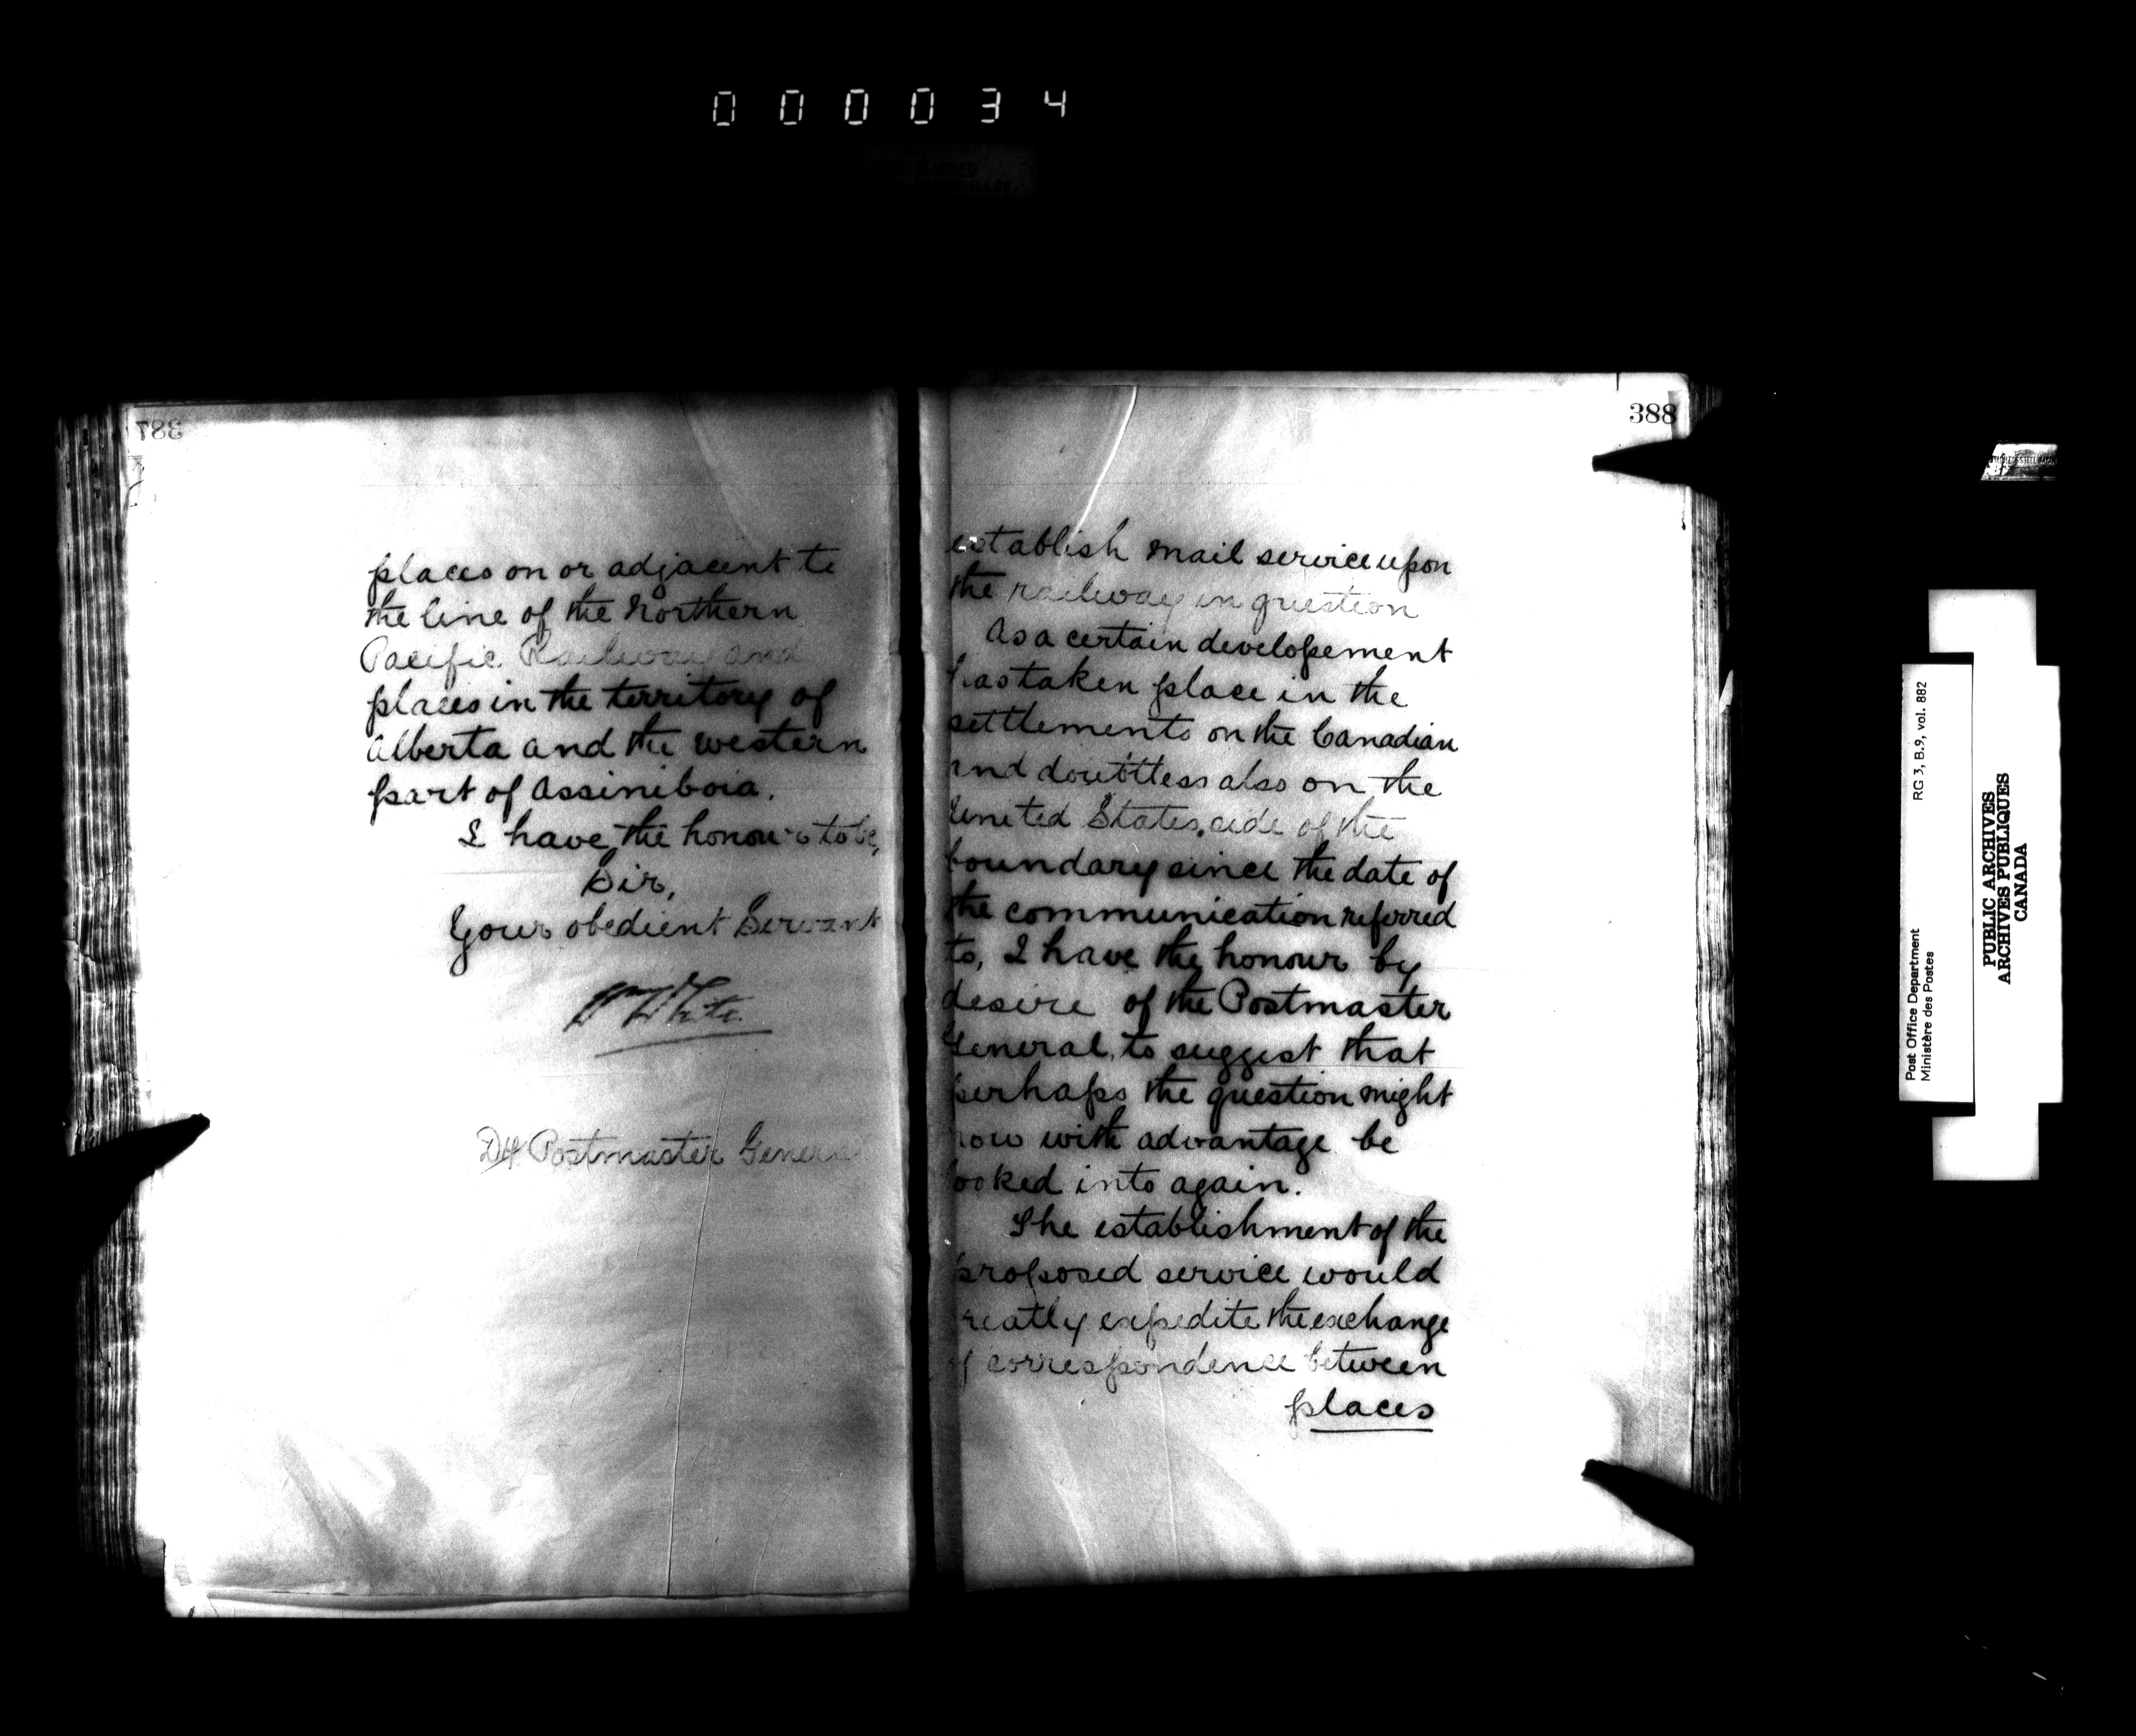 000034
387
places on or adjacent to
the line of the Northern
Pacific Railway and
places in the territory of
Alberta and the western
part of Assiniboia.
I have the honour to be,
Sir,
Your obedient Servant
Wm White
Dy Postmaster General
388
establish mail service upon
the railway in question
As a certain developement
has taken place in the
settlements on the Canadian
and doubtless also on the
United States, side of the
boundary since the date of
the communication referred
to, I have the honour by
desire of the Postmaster
General, to suggest that
perhaps the question might
now with advantage be
looked into again.
The establishment of the
proposed service would
greatly expedite the exchange
of correspondence between
places
Post Office Department
Ministère des Postes
RG 3, B.9, vol. 882
PUBLIC ARCHIVES
ARCHIVES PUBLIQUES
CANADA